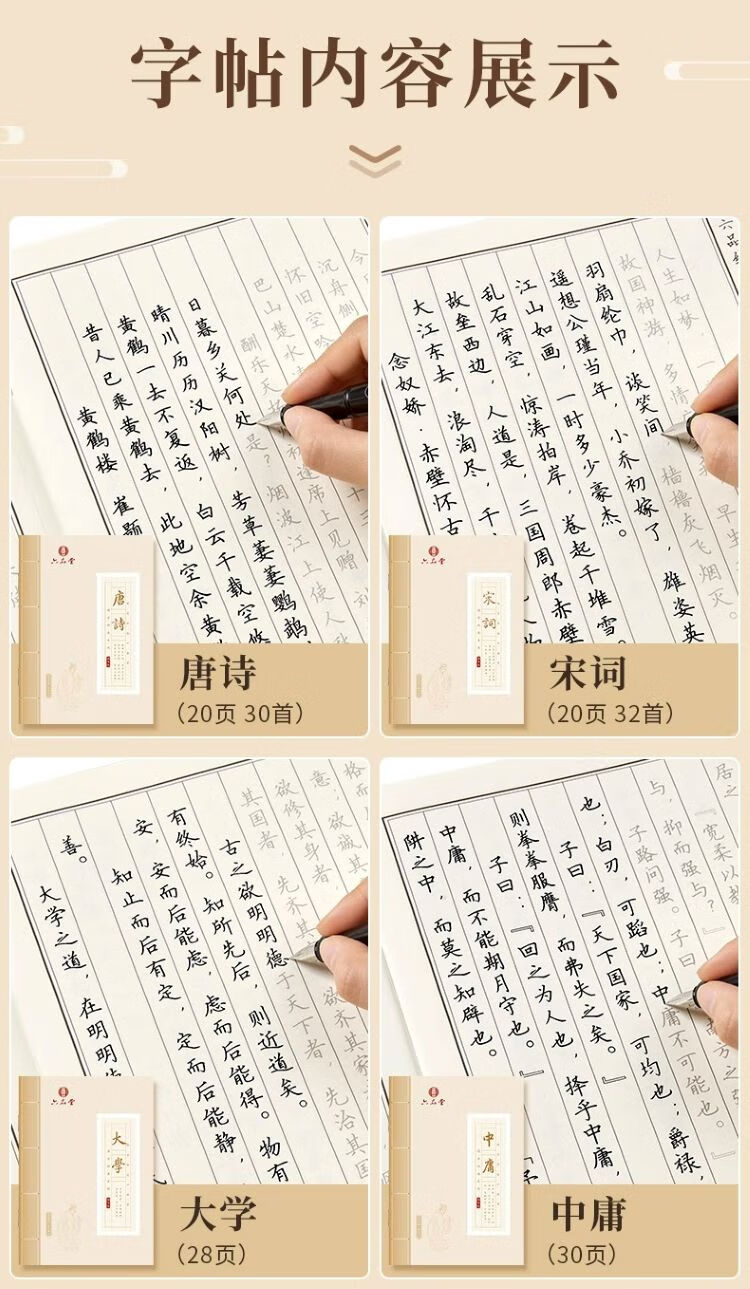 字帖内容展示
黄鹤楼 崔颢
昔人已乘黄鹤去，此地空余黄
黄鹤一去不复返，白云千载空悠
晴川历历汉阳树，芳草萋萋鹦鹉
日暮乡关何处是？烟波江上使人
酬乐天 初逢席上见赠 刘
巴山楚水
怀旧空吟
沉舟侧
今
六品堂
唐詩
唐诗
（20页 30首）
念奴娇·赤壁怀古
大江东去，浪淘尽，千
故垒西边，人道是，三国周郎赤壁
乱石穿空，惊涛拍岸，卷起千堆雪。
江山如画，一时多少豪杰。
遥想公瑾当年，小乔初嫁了，雄姿英
羽扇纶巾，谈笑间，樯橹灰飞烟灭。
故国神游，多情 早生
人生如梦，一
六品堂
宋詞
宋词
（20页 32首）
大学之道，在明明
善。
知止而后有定，定而后能静，
安，安而后能虑，虑而后能得。物有
有终始。知所先后，则近道矣。
古之欲明明德于天下者，先治其国
其国者，先齐其 欲齐其家
欲修其身者，
意；欲诚其
格而
六品堂
大學
大学
（28页）
阱之中，而莫之知辟也。
中庸，而不能期月守也。』
子曰：『回之为人也，择乎中庸，
则拳拳服膺，而弗失之矣。』
子曰：『天下国家，可均也；爵禄，
也；白刃，可蹈也；中庸不可能也。』
子路问强。子曰
与，抑而强与？
『宽柔以教 方之强
居之
六品堂
中庸
中庸
（30页）